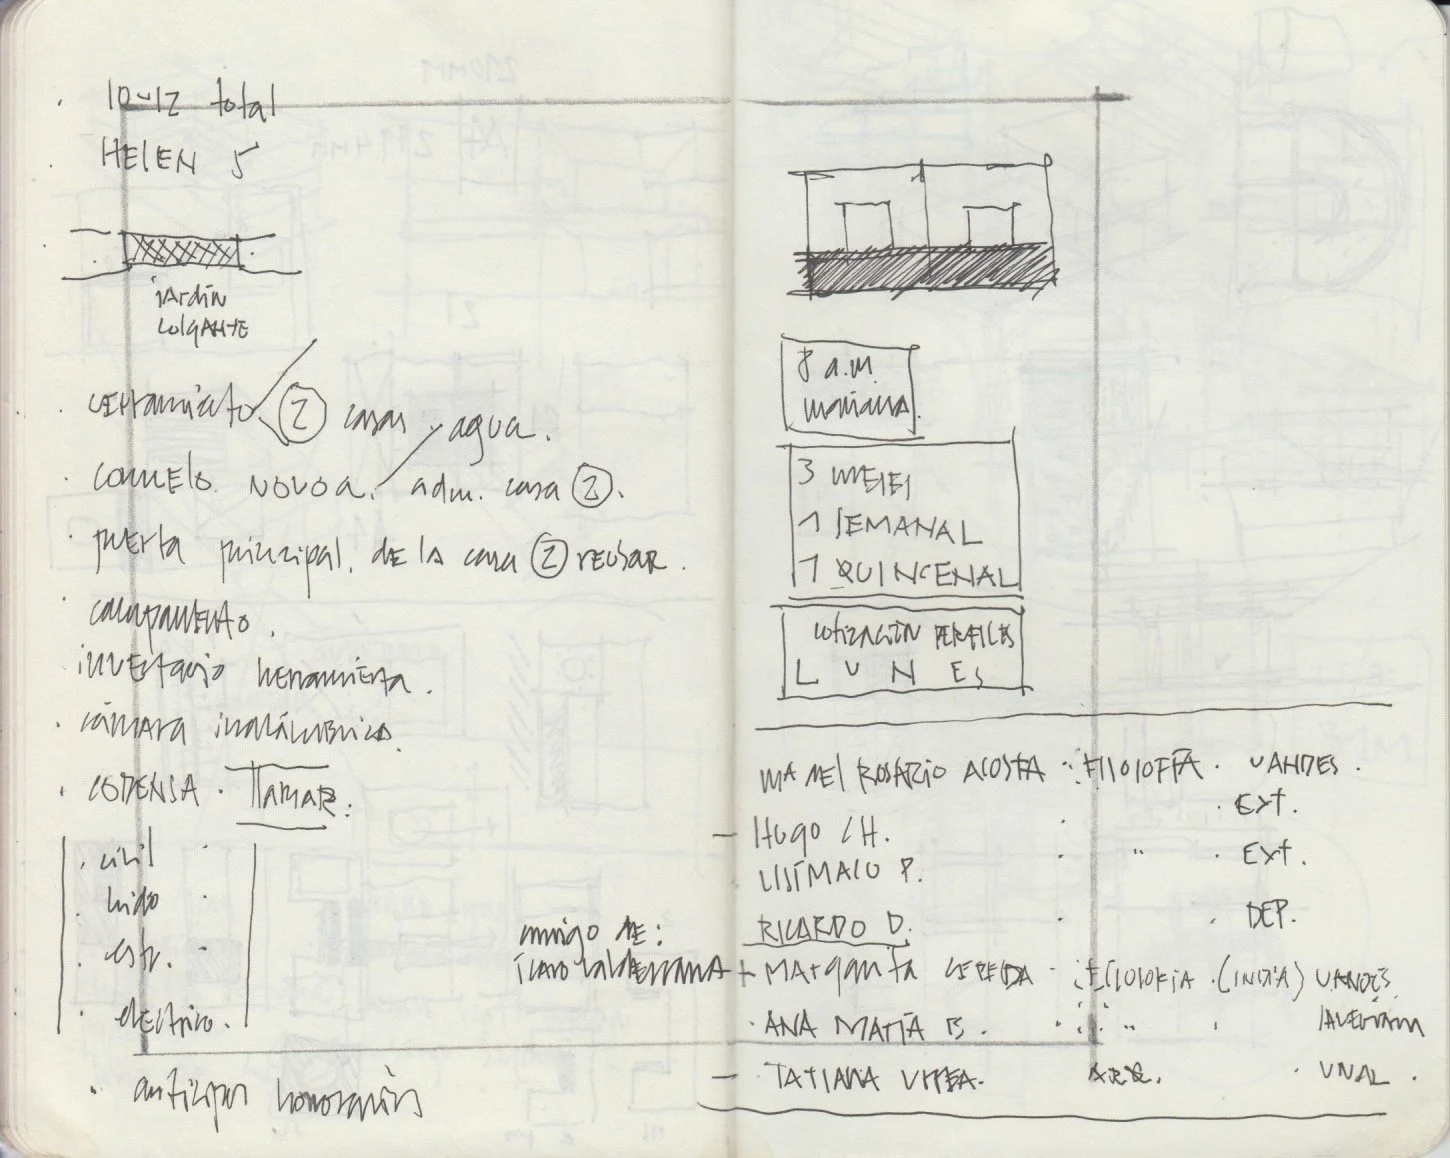 10-12 total
HELEN 5
jardín
colgante
cerramiento 2 casas. agua.
Consuelo Novoa. adm. casa 2.
puerta principal. de la casa 2 revisar.
campamento.
inventario herramienta.
cámara inalámbrica.
CODENSA. llamar.
civil
hidro
estr.
eléctrico.
anticipos honorarios
8 a.m.
mañana.
3 MESES
1 SEMANAL
1 QUINCENAL
cotización PERFILES
LUNES
Ma DEL ROSARIO ACOSTA FILOSOFÍA. UANDES.
Ext.
HUGO CH.
" Ext.
LISÍMACO P.
RICARDO D. DEP.
amigo de:
+ Margarita CEPEDA FILOSOFÍA (INDIA) UANDES
ANA MARÍA B. " JAVERIANA
TATIANA ARQ. UNAL.